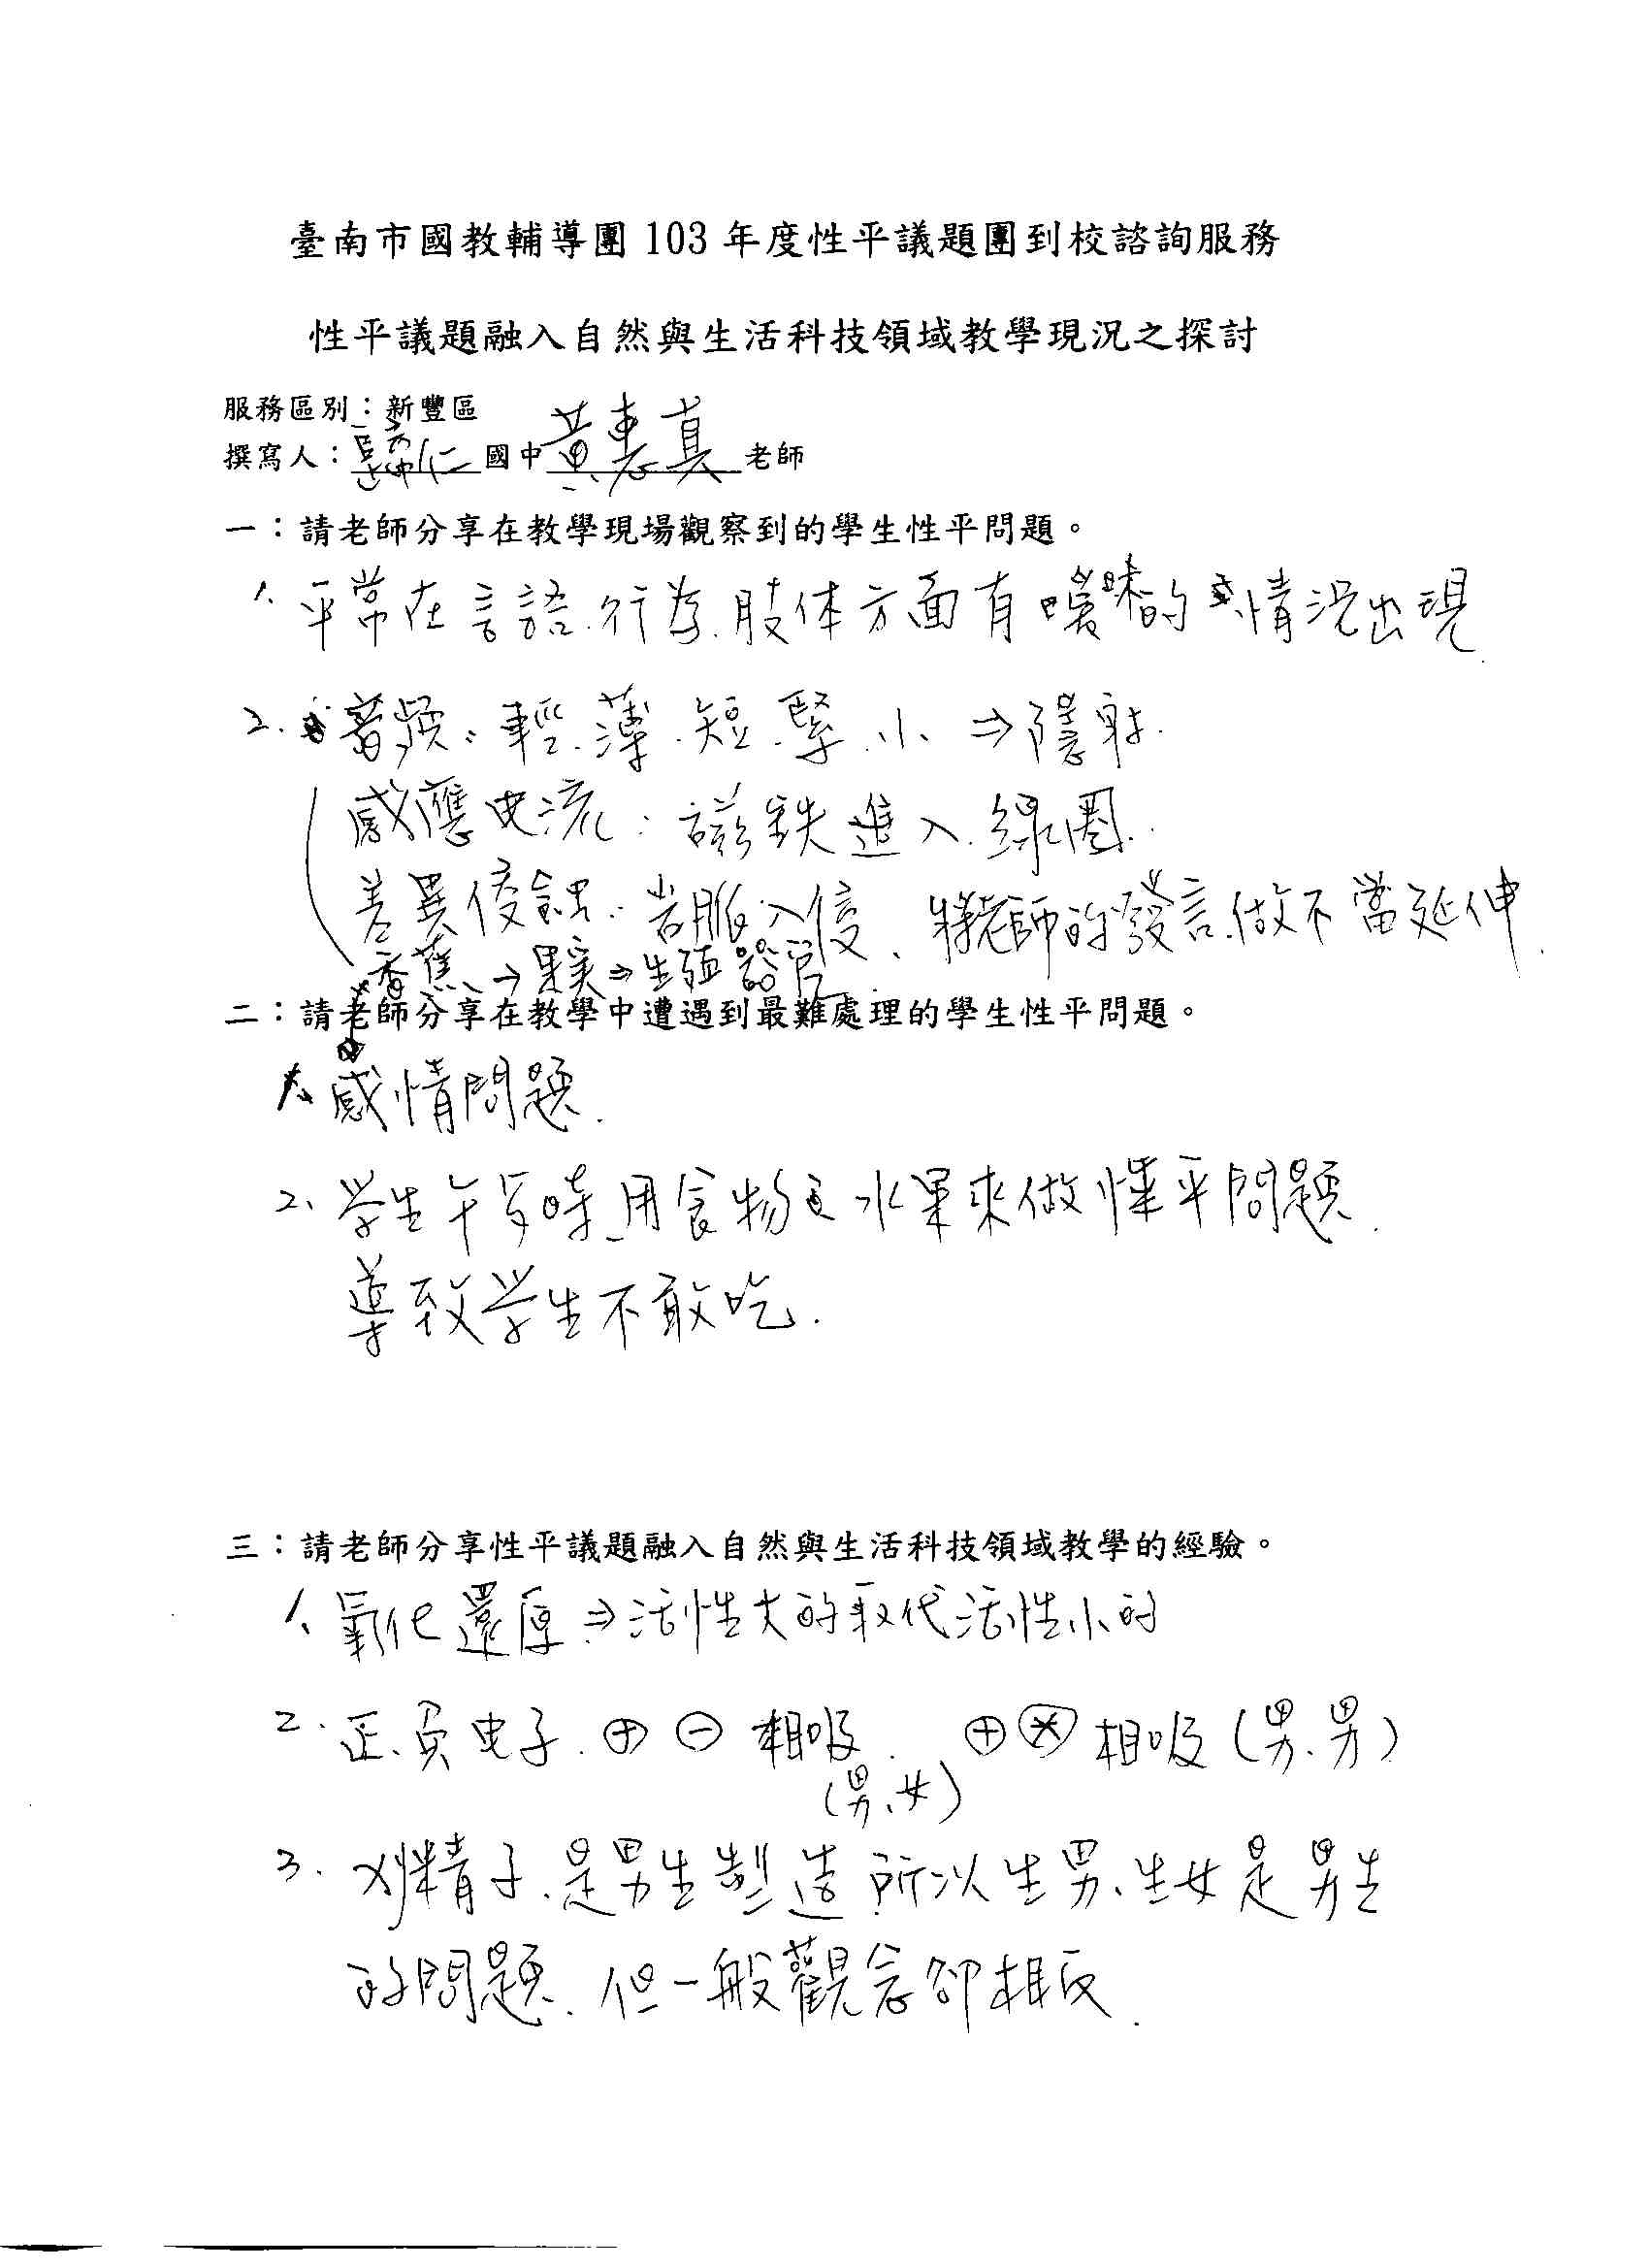 臺南市國教輔導團 103 年度性平議題團到校諮詢服務
性平議題融入自然與生活科技領域教學現況之探討
服務區別：新豐區
撰寫人：歸仁國中黃惠真老師
一：請老師分享在教學現場觀察到的學生性平問題。
1. 平常在言語.行為.肢体方面有曖昧的情況出現.
2. 音頻：輕.薄.短.緊.小 ⇒隱射.
感應电流：磁鉄進入線圈.
差異侵蝕：岩脈入侵、將老師的發言.做不當延伸.
香蕉→果实⇒生殖器官.
二：請老師分享在教學中遭遇到最難處理的學生性平問題。
1. 感情問題.
2、学生午餐時.用食物 水果來做性平問題.
導致学生不敢吃.
三：請老師分享性平議題融入自然與生活科技領域教學的經驗。
1、氧化還原⇒活性大的取代活性小的
2. 正、負电子. ⊕ ⊖ 相吸. ⊕ 相吸(男、男)
(男、女)
3. 精子.是男生製造.所以生男、生女是男生
的問題.但一般觀念卻相反.